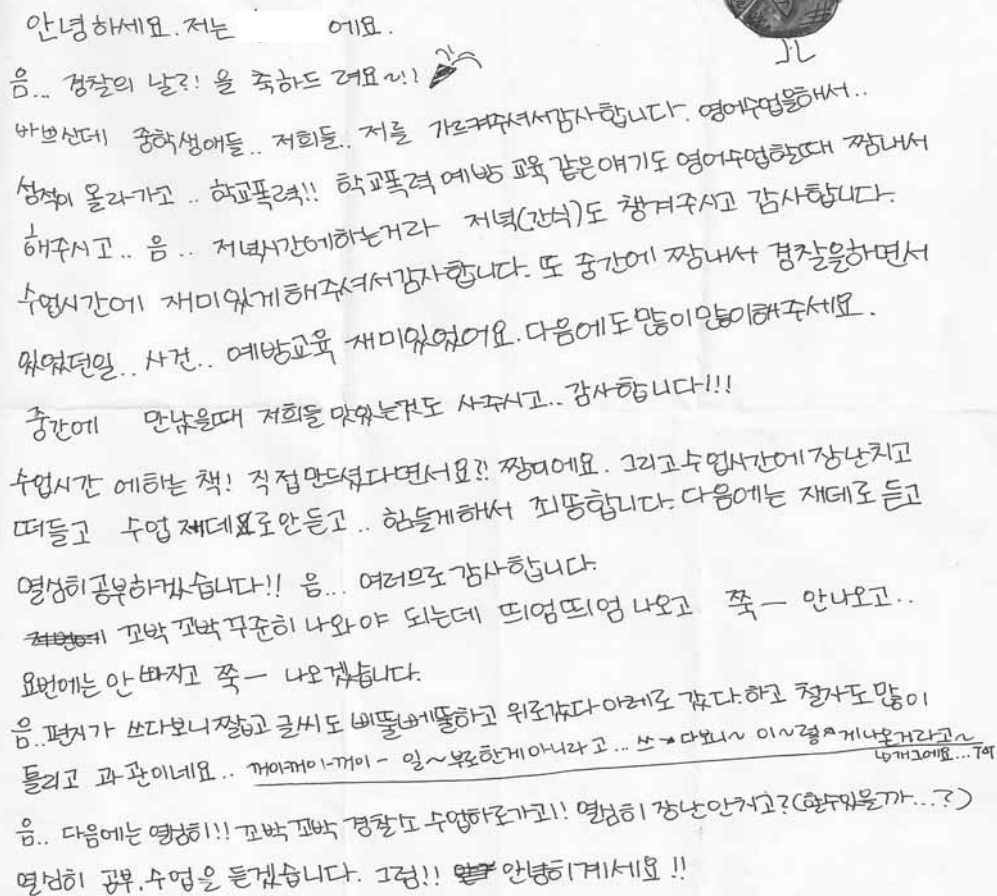 안녕하세요. 저는 에요.
음... 경찰의 날?! 을 축하드 려요~!!
바쁘신데 중학생애들.. 저희들.. 저를 가르켜주셔서감사합니다. 영어수업을해서..
성적이 올라가고 .. 학교폭력!! 학교폭력 예방 교육 같은얘기도 영어수업할때 짬내서
해주시고.. 음 .. 저녁시간에하는거라 저녁(간식)도 챙겨주시고 감사합니다.
수업시간에 재미있게해주셔서감사합니다. 또 중간에 짬내서 경찰을하면서
있었던일.. 사건.. 예방교육 재미있었어요. 다음에도많이많이해주세요.
중간에 만났을때 저희들 맛있는것도 사주시고.. 감사합니다!!!
수업시간 에하는 책! 직접만드셨다면서요?! 짱이에요. 그리고수업시간에장난치고
떠들고 수업 재데로안듣고 .. 힘들게해서 죄똥합니다. 다음에는 재데로 듣고
열심히공부하겠습니다!! 음... 여러므로감사합니다.
꼬박꼬박꾸준히 나와야 되는데 띄엄띄엄 나오고 쭉ㅡ 안나오고..
요번에는 안빠지고 쭉ㅡ 나오겠습니다.
음..편지가 쓰다보니짧고 글씨도 삐뚤삐뚤하고 위로갔다아레로 갔다.하고 철자도많이
틀리고 과관이네요.. 꺼이-꺼이-꺼이- 일~부로한게아니라고... 쓰 다보니~ 이~렇 게나온거라고~
음.. 다음에는 열심히!! 꼬박꼬박 경찰소 수업하로가고!! 열심히 장난안치고?(할수있을까...?)
열심히 공부.수업을 듣겠습니다. 그럼!! 안녕히계세요!!